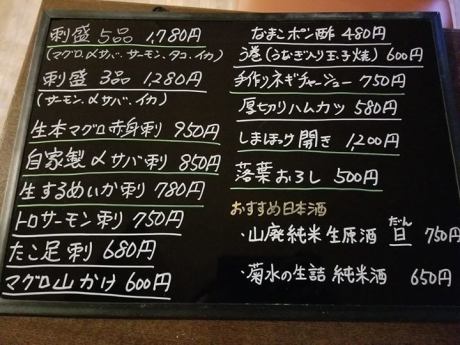 刺盛 5品 1,780円
(マグロ、〆サバ、サーモン、タコ、イカ)
刺盛 3品 1,280円
(サーモン、〆サバ、イカ)
生本マグロ赤身刺 950円
自家製〆サバ刺 850円
生するめいか刺 780円
トロサーモン刺 750円
たこ足刺 680円
マグロ山かけ 600円
なまこポン酢 480円
う巻(うなぎ入り玉子焼) 600円
手作りネギチャーシュー 750円
厚切りハムカツ 580円
しまほっけ開き 1,200円
落葉おろし 500円
おすすめ日本酒
・山廃純米生原酒 旦 750円
だん
・菊水の生詰 純米酒 650円